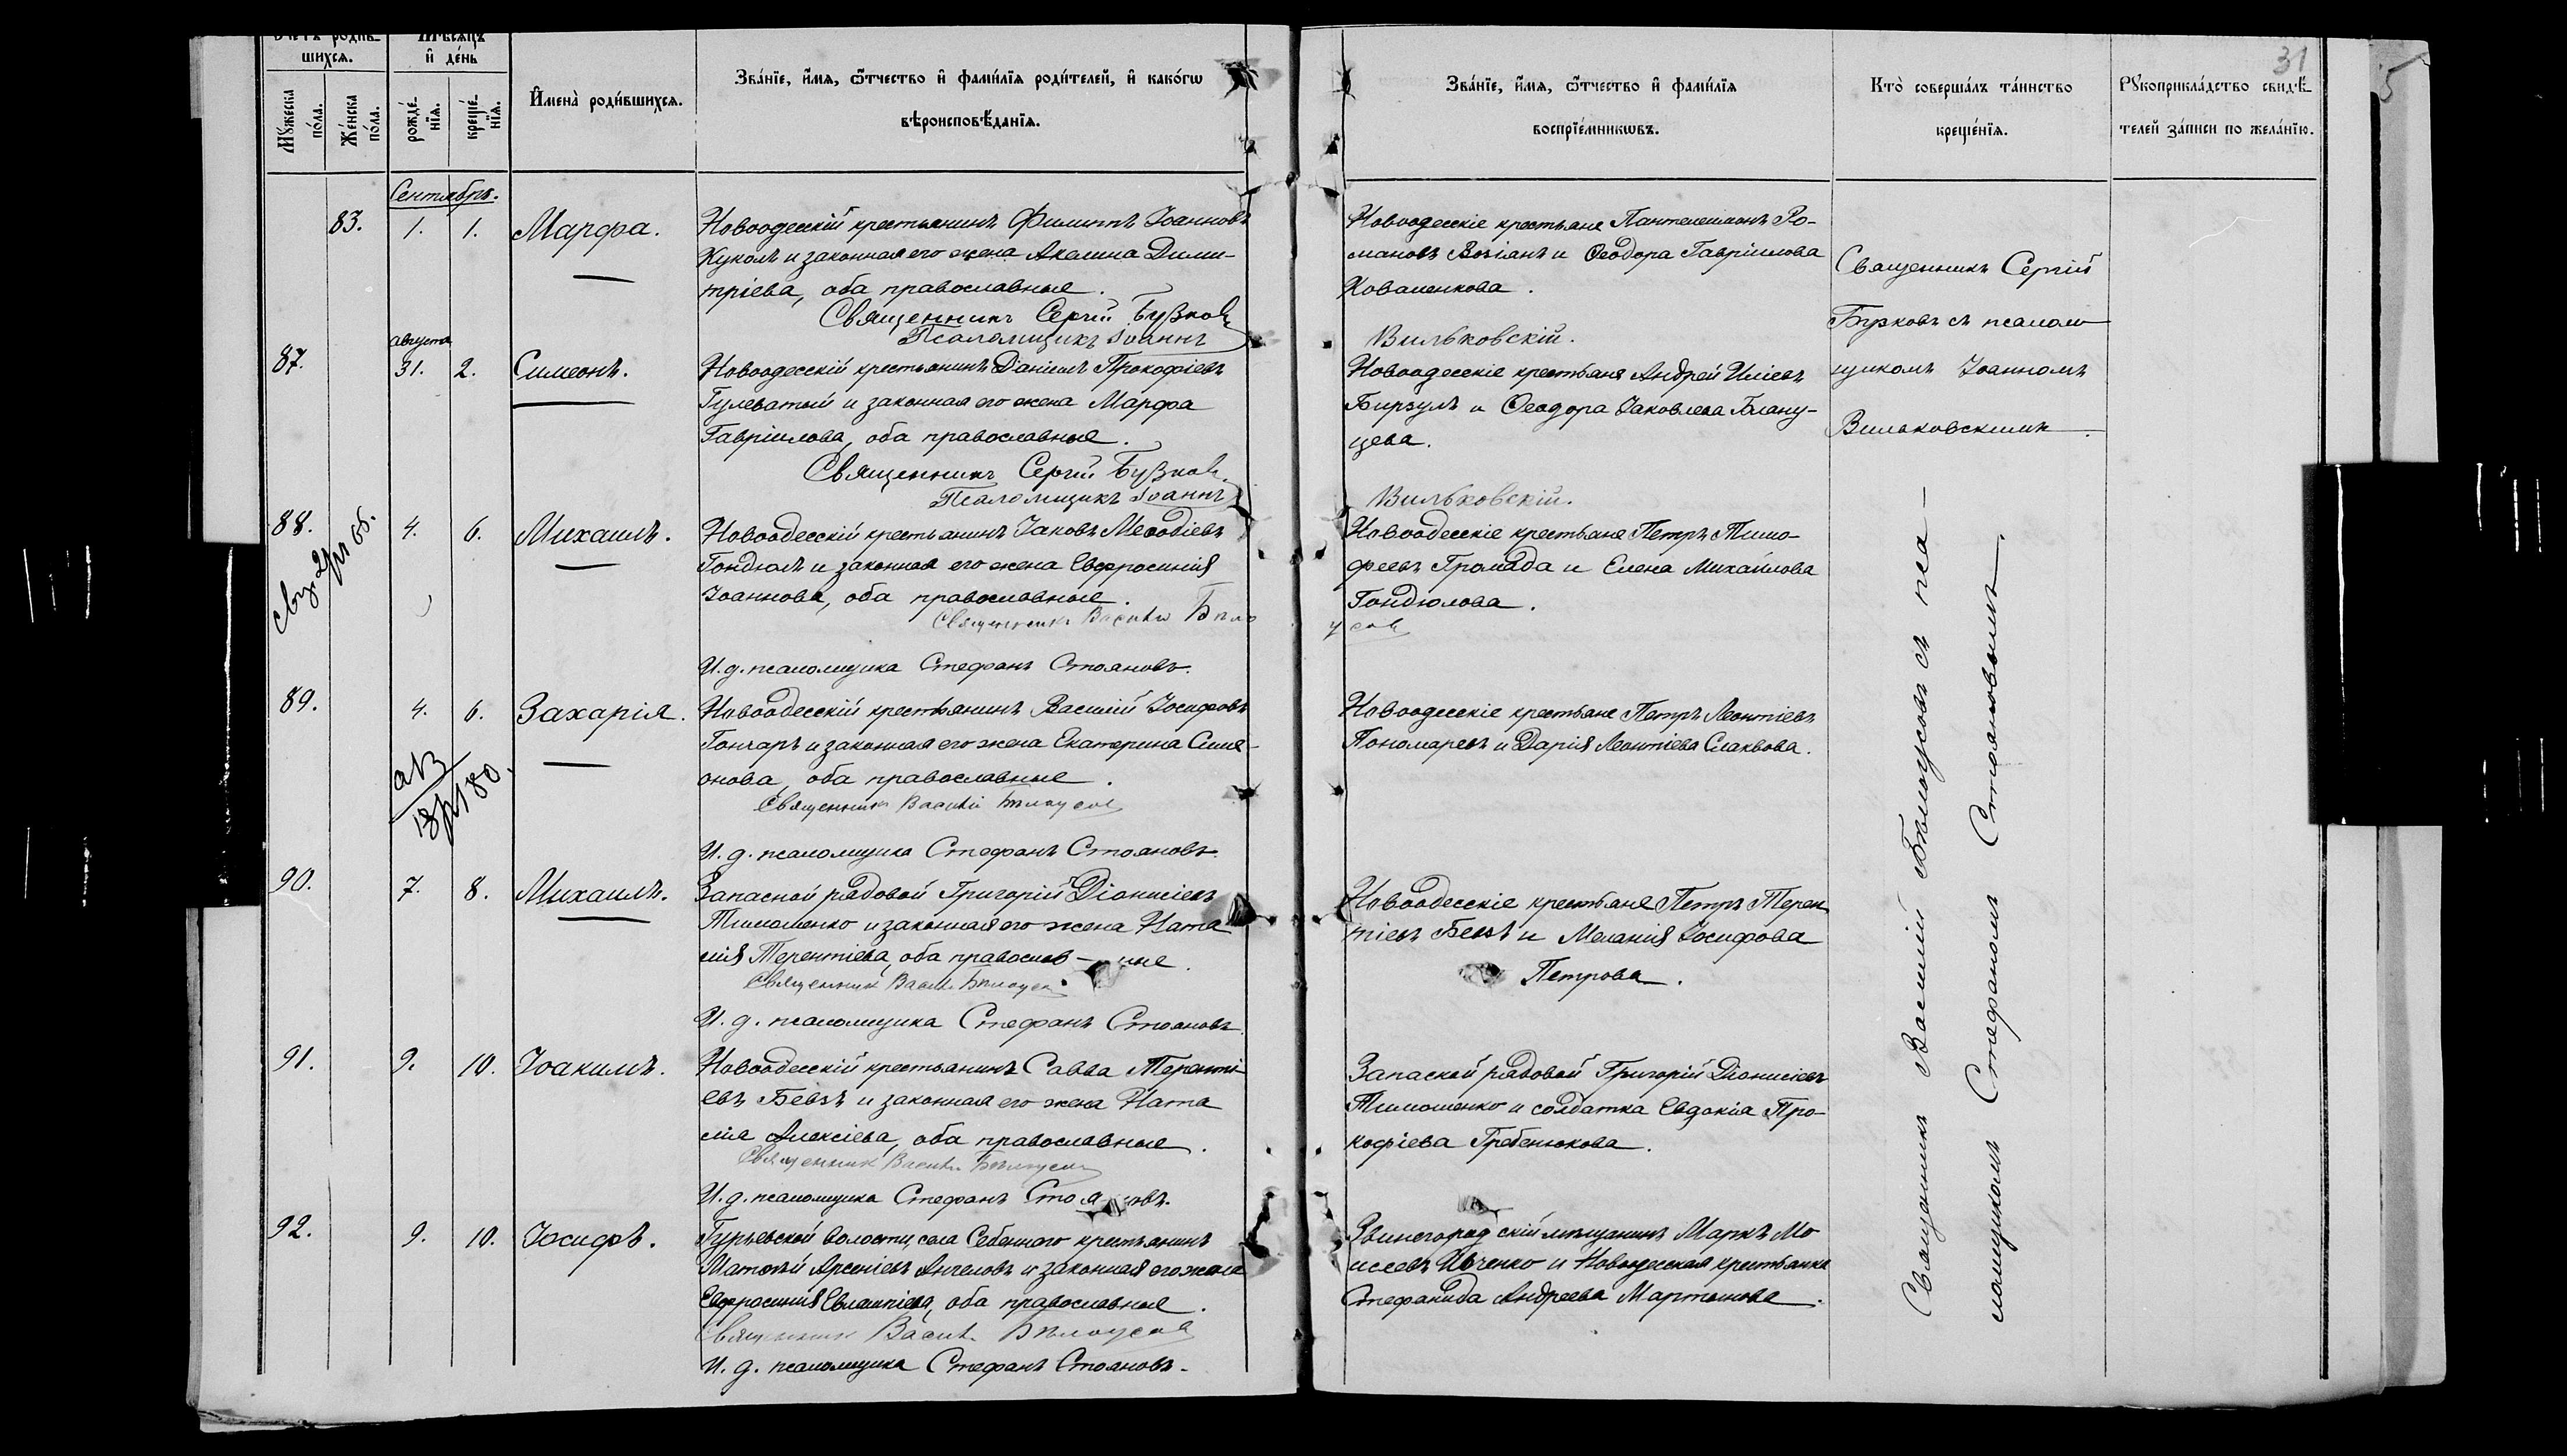 31
5
Счетъ родив-
шихся.
Мѣсяцъ
и҆ де́нь
Мꙋ́жеска
по́ла.
Же́нска
по́ла.
рожде́-
нїѧ.
креще́-
нїѧ.
И҆мена̀ роди́вшихсѧ.
Зва́нїе, и҆́мѧ, ѻ҆́тчество и҆ фами́лїѧ роди́телей, и҆ како́гѡ
вѣроисповѣ́данїѧ.
Зва́нїе, и҆́мѧ, ѻ҆́тчество и҆ фами́лїѧ
воспрїе́мникѡвъ.
Кто̀ соверша́лъ та́инство
креще́нїѧ.
Рꙋкоприкла́дство свидѣ́-
телей за́писи по жела́нїю.
Сентябрь.
83.
1.
1.
Марфа.
Новоодесскій крестьянинъ Филиппъ Іоанновъ
Куколъ и законная его жена Акелина Дими-
тріева, оба православные.
Священникъ Сергій Бузковъ
Псаломщикъ Іоаннъ
Новоодесскіе крестьяне Пантелеимонъ Ро-
мановъ Возіянъ и Ѳеодора Гавріилова
Коваленкова.
Вильковскій.
Священникъ Сергій
Бузковъ съ псалом-
щикомъ Іоанномъ
Вильковскимъ.
87.
августа
31.
2.
Симеонъ.
Новоодесскій крестьянинъ Даніилъ Прокофіевъ
Гулеватый и законная его жена Марфа
Гавріилова, оба православные.
Священникъ Сергій Бузковъ.
Псаломщикъ Іоаннъ
Новоодесскіе крестьяне Андрей Иліевъ
Бирзулъ и Ѳеодора Іаковлева Блану-
цева.
Вильковскій.
88.
4.
6.
Михаилъ.
Новоодесскій крестьянинъ Іаковъ Меѳодіевъ
Гондюлъ и законная его жена Евфросинія
Іоаннова, оба православные.
Священникъ Василій Бѣло
И. д. псаломщика Стефанъ Стояновъ.
Новоодесскіе крестьяне Петръ Тимо-
феевъ Громада и Елена Михайлова
Гондюлова.
усовъ
89.
4.
6.
Захарія.
Новоодесскій крестьянинъ Василій Іосифовъ
Гончаръ и законная его жена Екатерина Симе-
онова, оба православные.
Священникъ Василій Бѣлоусовъ
И. д. псаломщика Стефанъ Стояновъ.
Новоодесскіе крестьяне Петръ Леонтіевъ
Пономаревъ и Дарія Леонтіева Слаквова.
90.
7.
8.
Михаилъ.
Запасной рядовой Григорій Діонисіевъ
Тимошенко и законная его жена Ната
лія Терентіева, оба православ-ные.
Священникъ Василій Бѣлоусовъ
И. д. псаломщика Стефанъ Стояновъ.
Новоодесскіе крестьяне Петръ Терен
тіевъ Бевзъ и Меланія Іосифова
Петрова.
91.
9.
10.
Іоакимъ.
Новоодесскій крестьянинъ Савва Теренті-
евъ Бевзъ и законная его жена Ната
лія Алексіева, оба православные.
Священникъ Василій Бѣлоусовъ
И. д. псаломщика Стефанъ Стояновъ.
Запасной рядовой Григорій Діонисіевъ
Тимошенко и солдатка Евдокія Про-
кофіева Гребенюкова.
92.
9.
10.
Іосифъ.
Гурьевской волости, села Себеного крестьянинъ
Матѳей Арсеніевъ Ангеловъ и законная его жена
Евфросинія Евлампіева, оба православные.
Священникъ Василій Бѣлоусовъ
И. д. псаломщика Стефанъ Стояновъ.
Звинегородскій мѣщанинъ Маркъ Мо
исеевъ Ивченко и Новоодесская крестьянка
Стефанида Андреева Мартынова.
Священникъ Василій Бѣлоусовъ съ пса-
ломщикомъ Стефаномъ Стояновымъ.